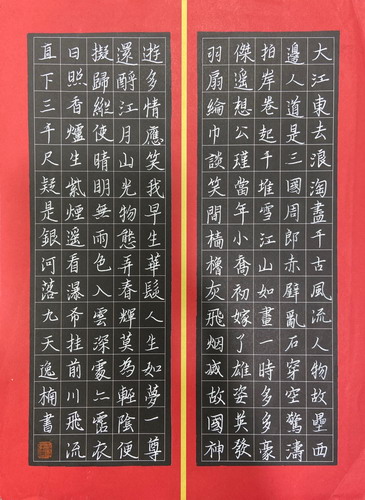 大江東去浪淘盡千古風流人物故壘西
邊人道是三國周郎赤壁亂石穿空驚濤
拍岸卷起千堆雪江山如畫一時多少豪
傑遥想公瑾當年小喬初嫁了雄姿英發
羽扇綸巾談笑間檣櫓灰飛烟滅故國神
遊多情應笑我早生華髮人生如夢一尊
還酹江月山光物態弄春輝莫為輕陰便
擬歸縱使晴明無雨色入雲深處亦霑衣
日照香爐生紫煙遥看瀑布挂前川飛流
直下三千尺疑是銀河落九天逸楠書